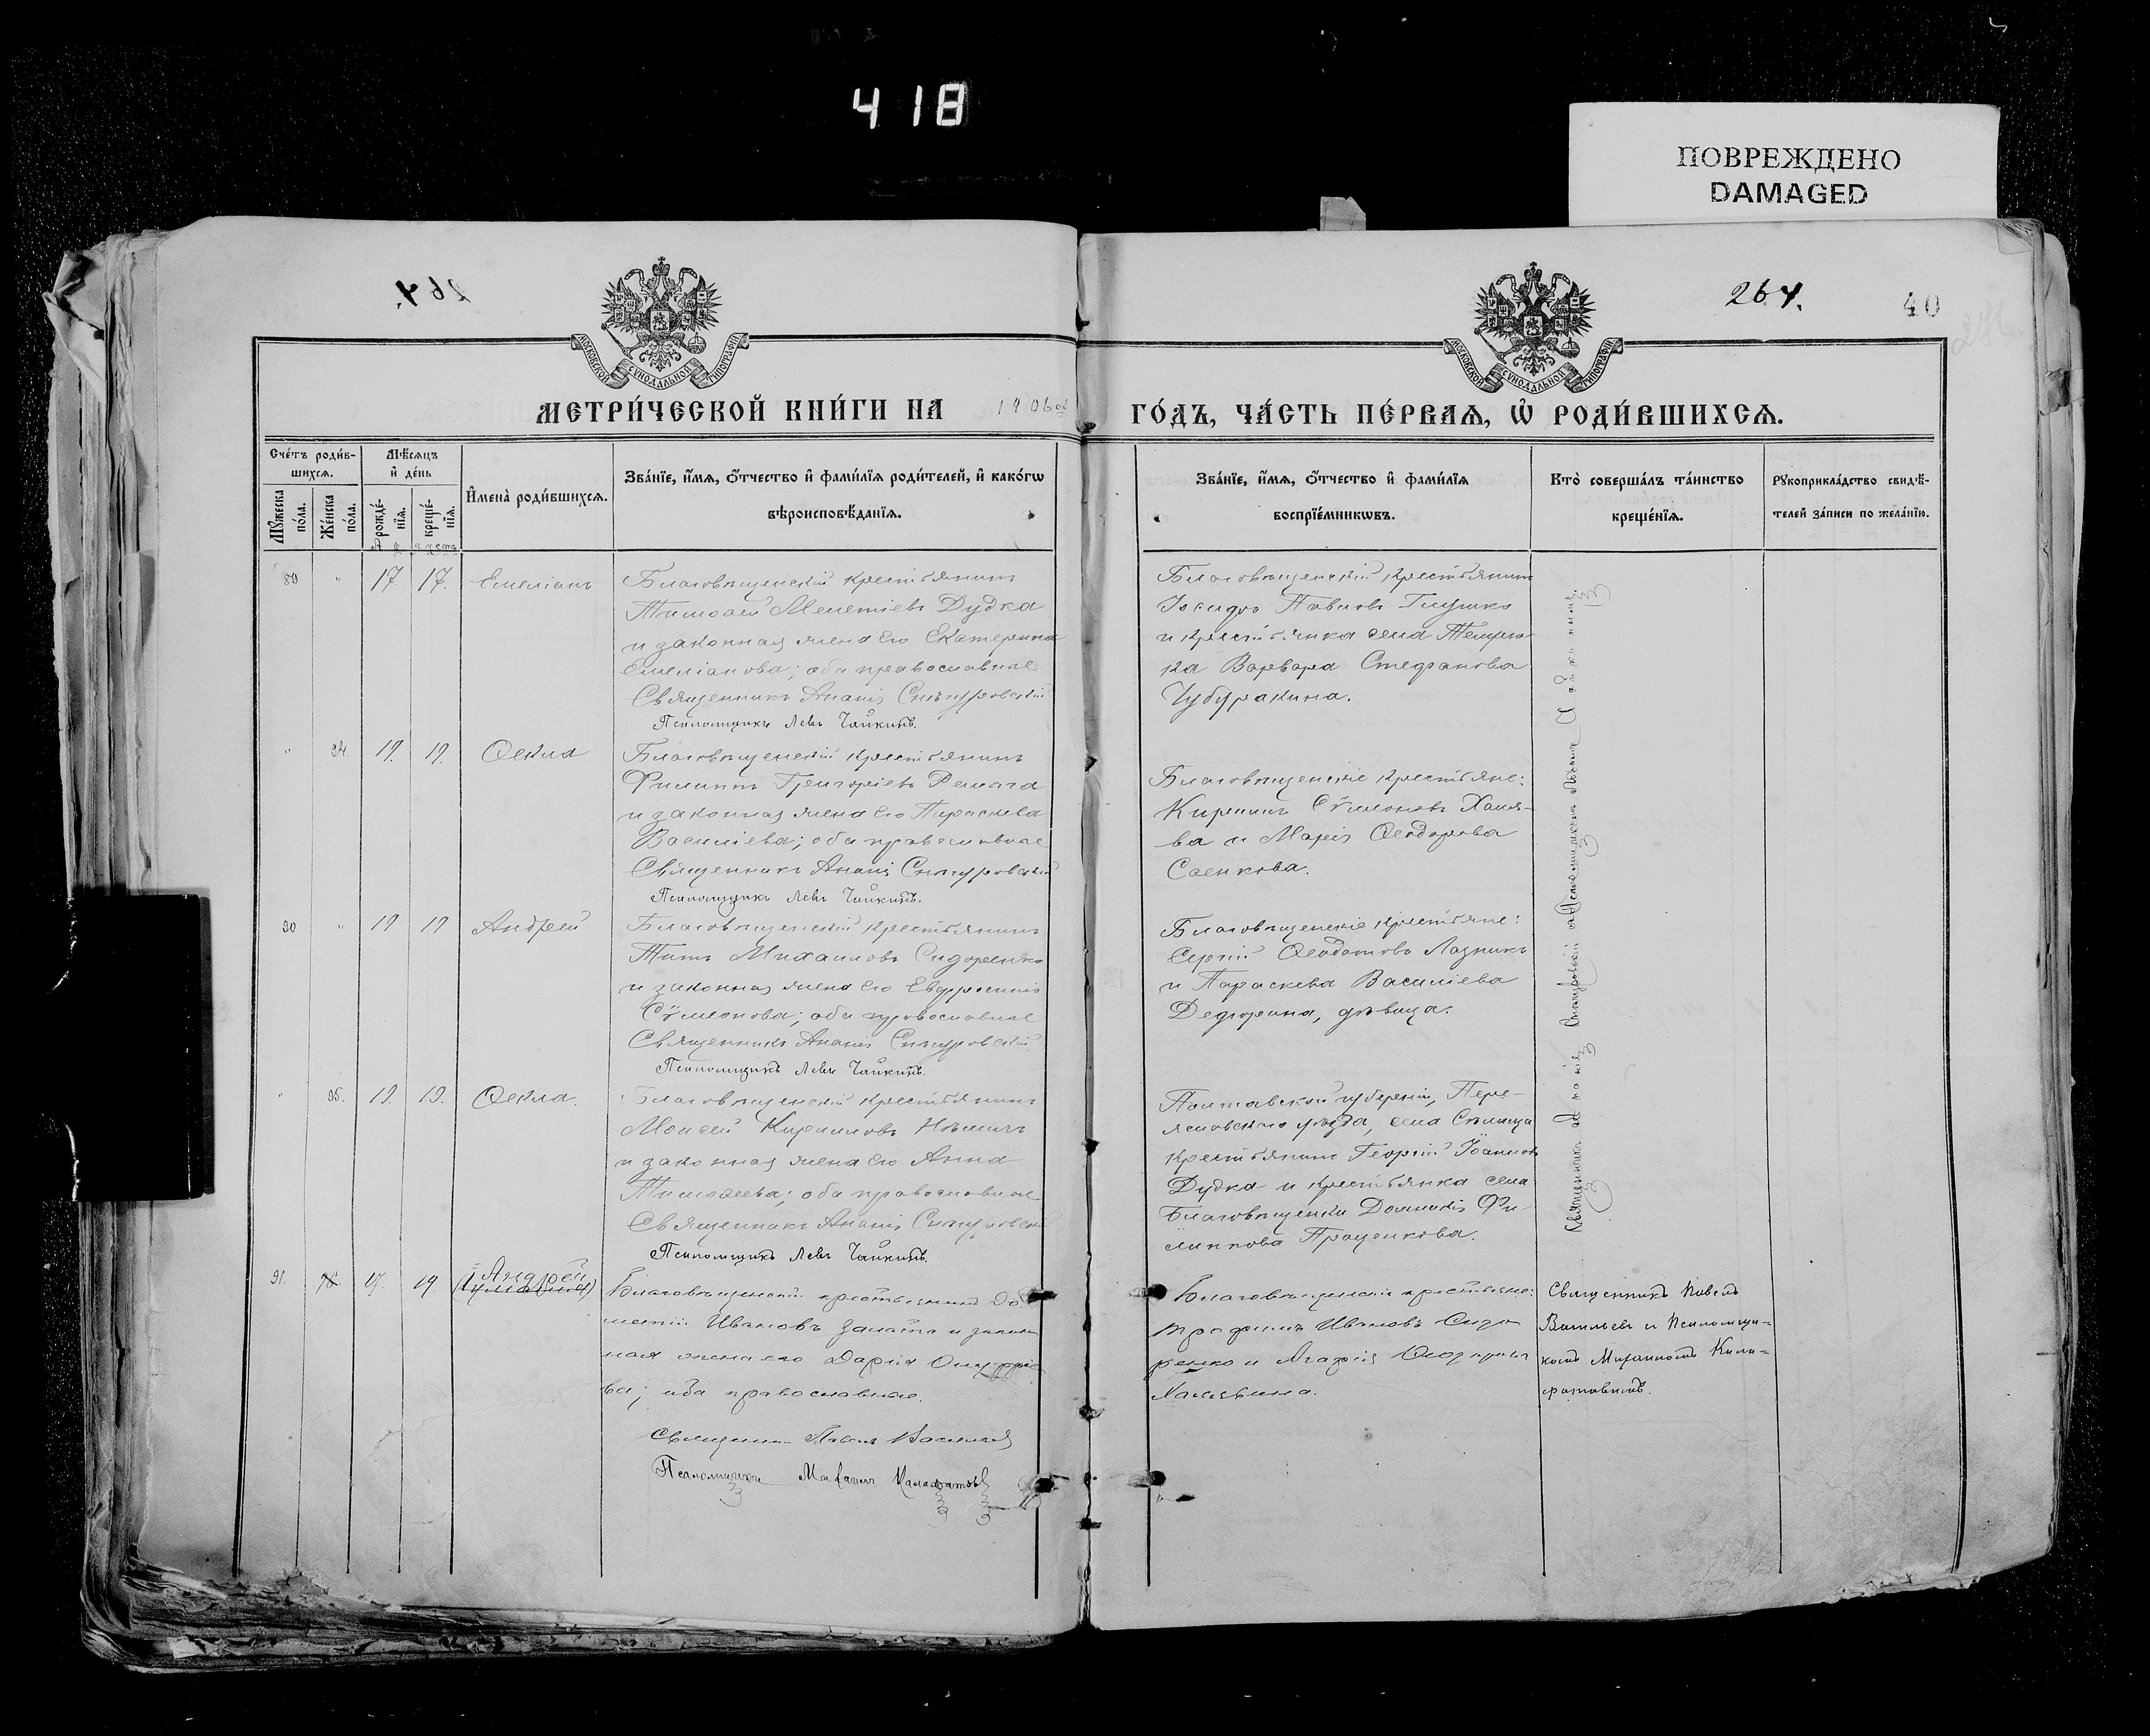 418
ПОВРЕЖДЕНО
DAMAGED
264.
264.
40
МОСКОВСКОЙ СѴНОДАЛЬНОЙ ТИПОГРАФІИ
МОСКОВСКОЙ СѴНОДАЛЬНОЙ ТИПОГРАФІИ
МЕТРИ́ЧЕСКОЙ КНИ́ГИ НА 1906ой ГО́ДЪ, ЧА́СТЬ ПЕ́РВАЯ, Ѡ҆ РОДИ́ВШИХСЯ.
Сче́тъ роди́в-
шихся.
Мꙋжеска по́ла.
Же́нска по́ла.
Мѣ́сяцъ
и҆ де́нь
рожде́-
нїя.
креще́-
нїя.
И҆мена̀ роди́вшихся.
Зва́нїе, и҆́мя, ѻ҆́тчество и҆ фами́лїя роди́телей, и҆ како́гѡ
вѣроисповѣ́данїя.
Зва́нїе, и҆́мя, ѻ҆́тчество и҆ фами́лїя
воспрїе́мникѡвъ.
Кто̀ соверша́лъ та́инство
креще́нїя.
Рꙋкоприкла́дство свидѣ́-
телей за́писи по жела́нїю.
Августа
89 " 17. 17. Емеліанъ
Благовѣщенскій крестьянинъ
Тимоѳей Мелетіевъ Дудка
и законная жена его Екатерина
Емеліанова; оба православные
Священникъ Ананія Снѣгуровскій
Псаломщикъ Левъ Чайкинъ.
Благовѣщенскій крестьянинъ
Іосидръ Павловъ Глушко
и крестьянка села Темрю-
ка Варвара Стефанова
Чубуракина.
" 94. 19. 19. Ѳекла
Благовѣщенскій крестьянинъ
Филиппъ Григоріевъ Ремага
и законная жена его Параскева
Василіева; оба православные
Священникъ Ананія Снѣгуровскій
Псаломщикъ Левъ Чайкинъ.
Благовѣщенскіе крестьяне:
Кириллъ Сѵмеоновъ Халя-
ва и Марія Ѳеодорова
Саенкова.
90 " 19 19 Андрей
Благовѣщенскій крестьянинъ
Титъ Михаиловъ Сидоренко
и законная жена его Евфросинія
Сѵмеонова; оба православные
Священникъ Ананія Снѣгуровскій
Псаломщикъ Левъ Чайкинъ.
Благовѣщенскіе крестьяне:
Сергій Ѳеодотовъ Лазникъ
и Параскева Василіева
Дедюрина, дѣвица.
" 95. 19. 19. Ѳекла.
Благовѣщенскій крестьянинъ
Моисей Кирилловъ Нѣмичъ
и законная жена его Анна
Тимоѳеева; оба православные
Священникъ Ананія Снѣгуровскій
Псаломщикъ Левъ Чайкинъ.
Полтавской губерніи, Пере-
яславскаго уѣзда, села
крестьянинъ Георгій Іоанновъ
Дудка и крестьянка села
Благовѣщенки Домникія Фи-
липпова Проценкова.
Священникъ Ананія Снѣгуровскій съ Псаломщикомъ
91. 17. 19. Андрей
Благовѣщенскій крестьянинъ До-
метій Ивановъ Запата и закон-
ная жена его Дарія Онуфріе-
ва; оба православные.
Священникъ Павелъ Васильевъ
Псаломщикъ Михаилъ Калафатовъ
Благовѣщенскіе крестьяне:
Трофимъ Ивановъ Сидо-
ренко и Агафія Ѳеодорова
Халявина.
Священникъ Павелъ
Васильевъ и Псаломщи-
комъ Михаиломъ Кала-
фатовымъ.